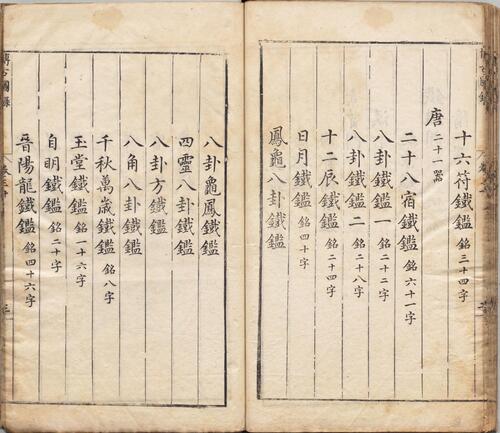 十六符鐵鑑 銘三十四字
唐 二十一器
二十八宿鐵鑑 銘六十一字
八卦鐵鑑一 銘二十二字
八卦鐵鑑二 銘二十八字
十二辰鐵鑑 銘二十四字
日月鐵鑑 銘四十字
鳳龜八卦鐵鑑
八卦龜鳳鐵鑑
四靈八卦鐵鑑
八卦方鐵鑑
八角八卦鐵鑑
千秋萬歲鐵鑑 銘八字
玉堂鐵鑑 銘一十六字
自明鐵鑑 銘二十字
晉陽龍鐵鑑 銘四十六字
博古圖錄